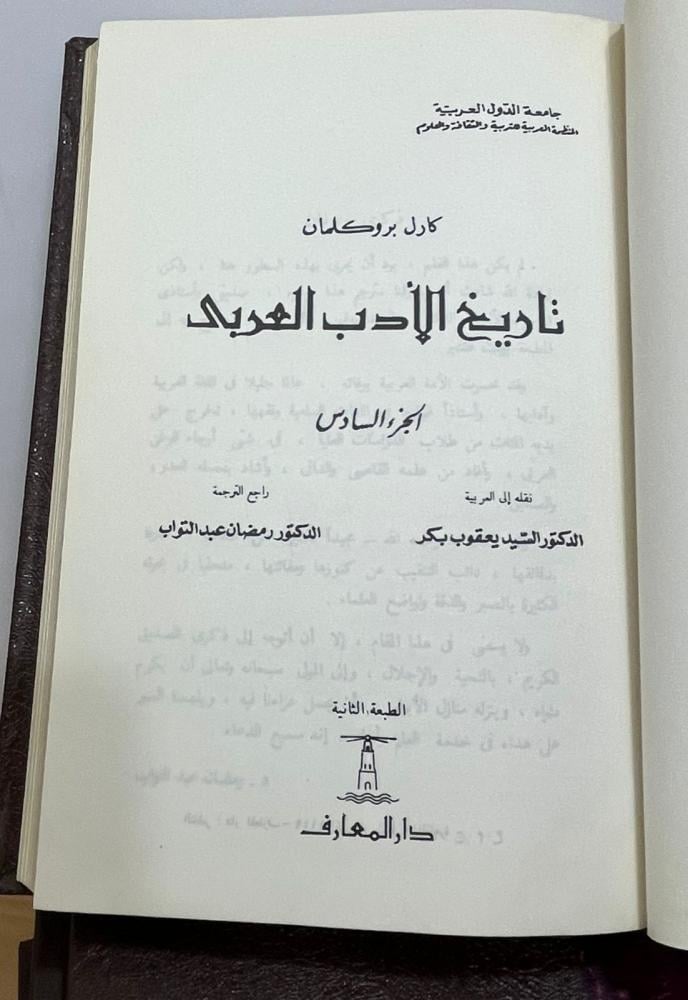 جامعة الدول العربية
المنظمة العربية للتربية والثقافة والعلوم
كارل بروكلمان
تاريخ الأدب العربى
الجزء السادس
نقله إلى العربية
راجع الترجمة
الدكتور السيد يعقوب بكر
الدكتور رمضان عبد التواب
الطبعة الثانية
دار المعارف